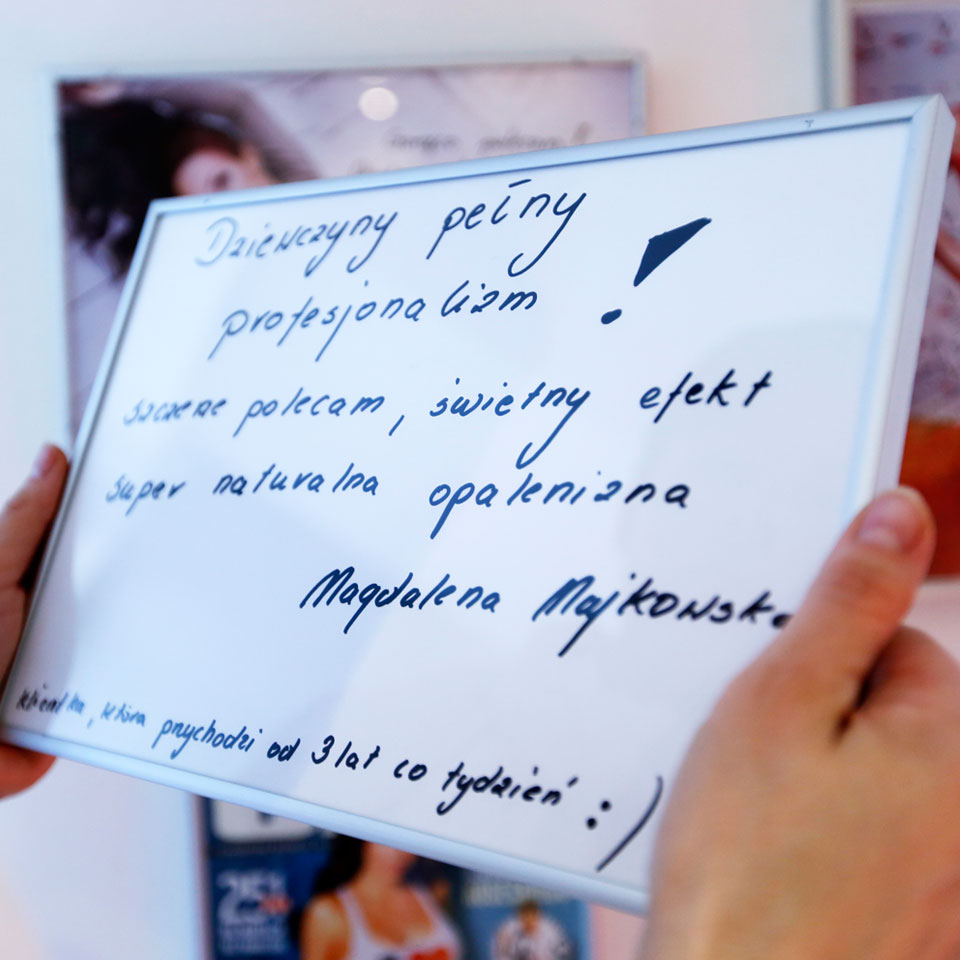 Dziewczyny pełny
profesjonalizm !
szczeze polecam, świetny efekt
super naturalna opalenizna
Magdalena Majkowska
klientka, która przychodzi od 3 lat co tydzień :)
25%